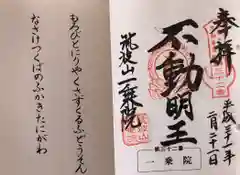 奉拝
不動明王
筑波山一乗院
平成三十一年
二月二十一日
第三十二番
一乗院
もろびとにりやくさずくるふどうそん
なさけつくばのふかきたにがわ